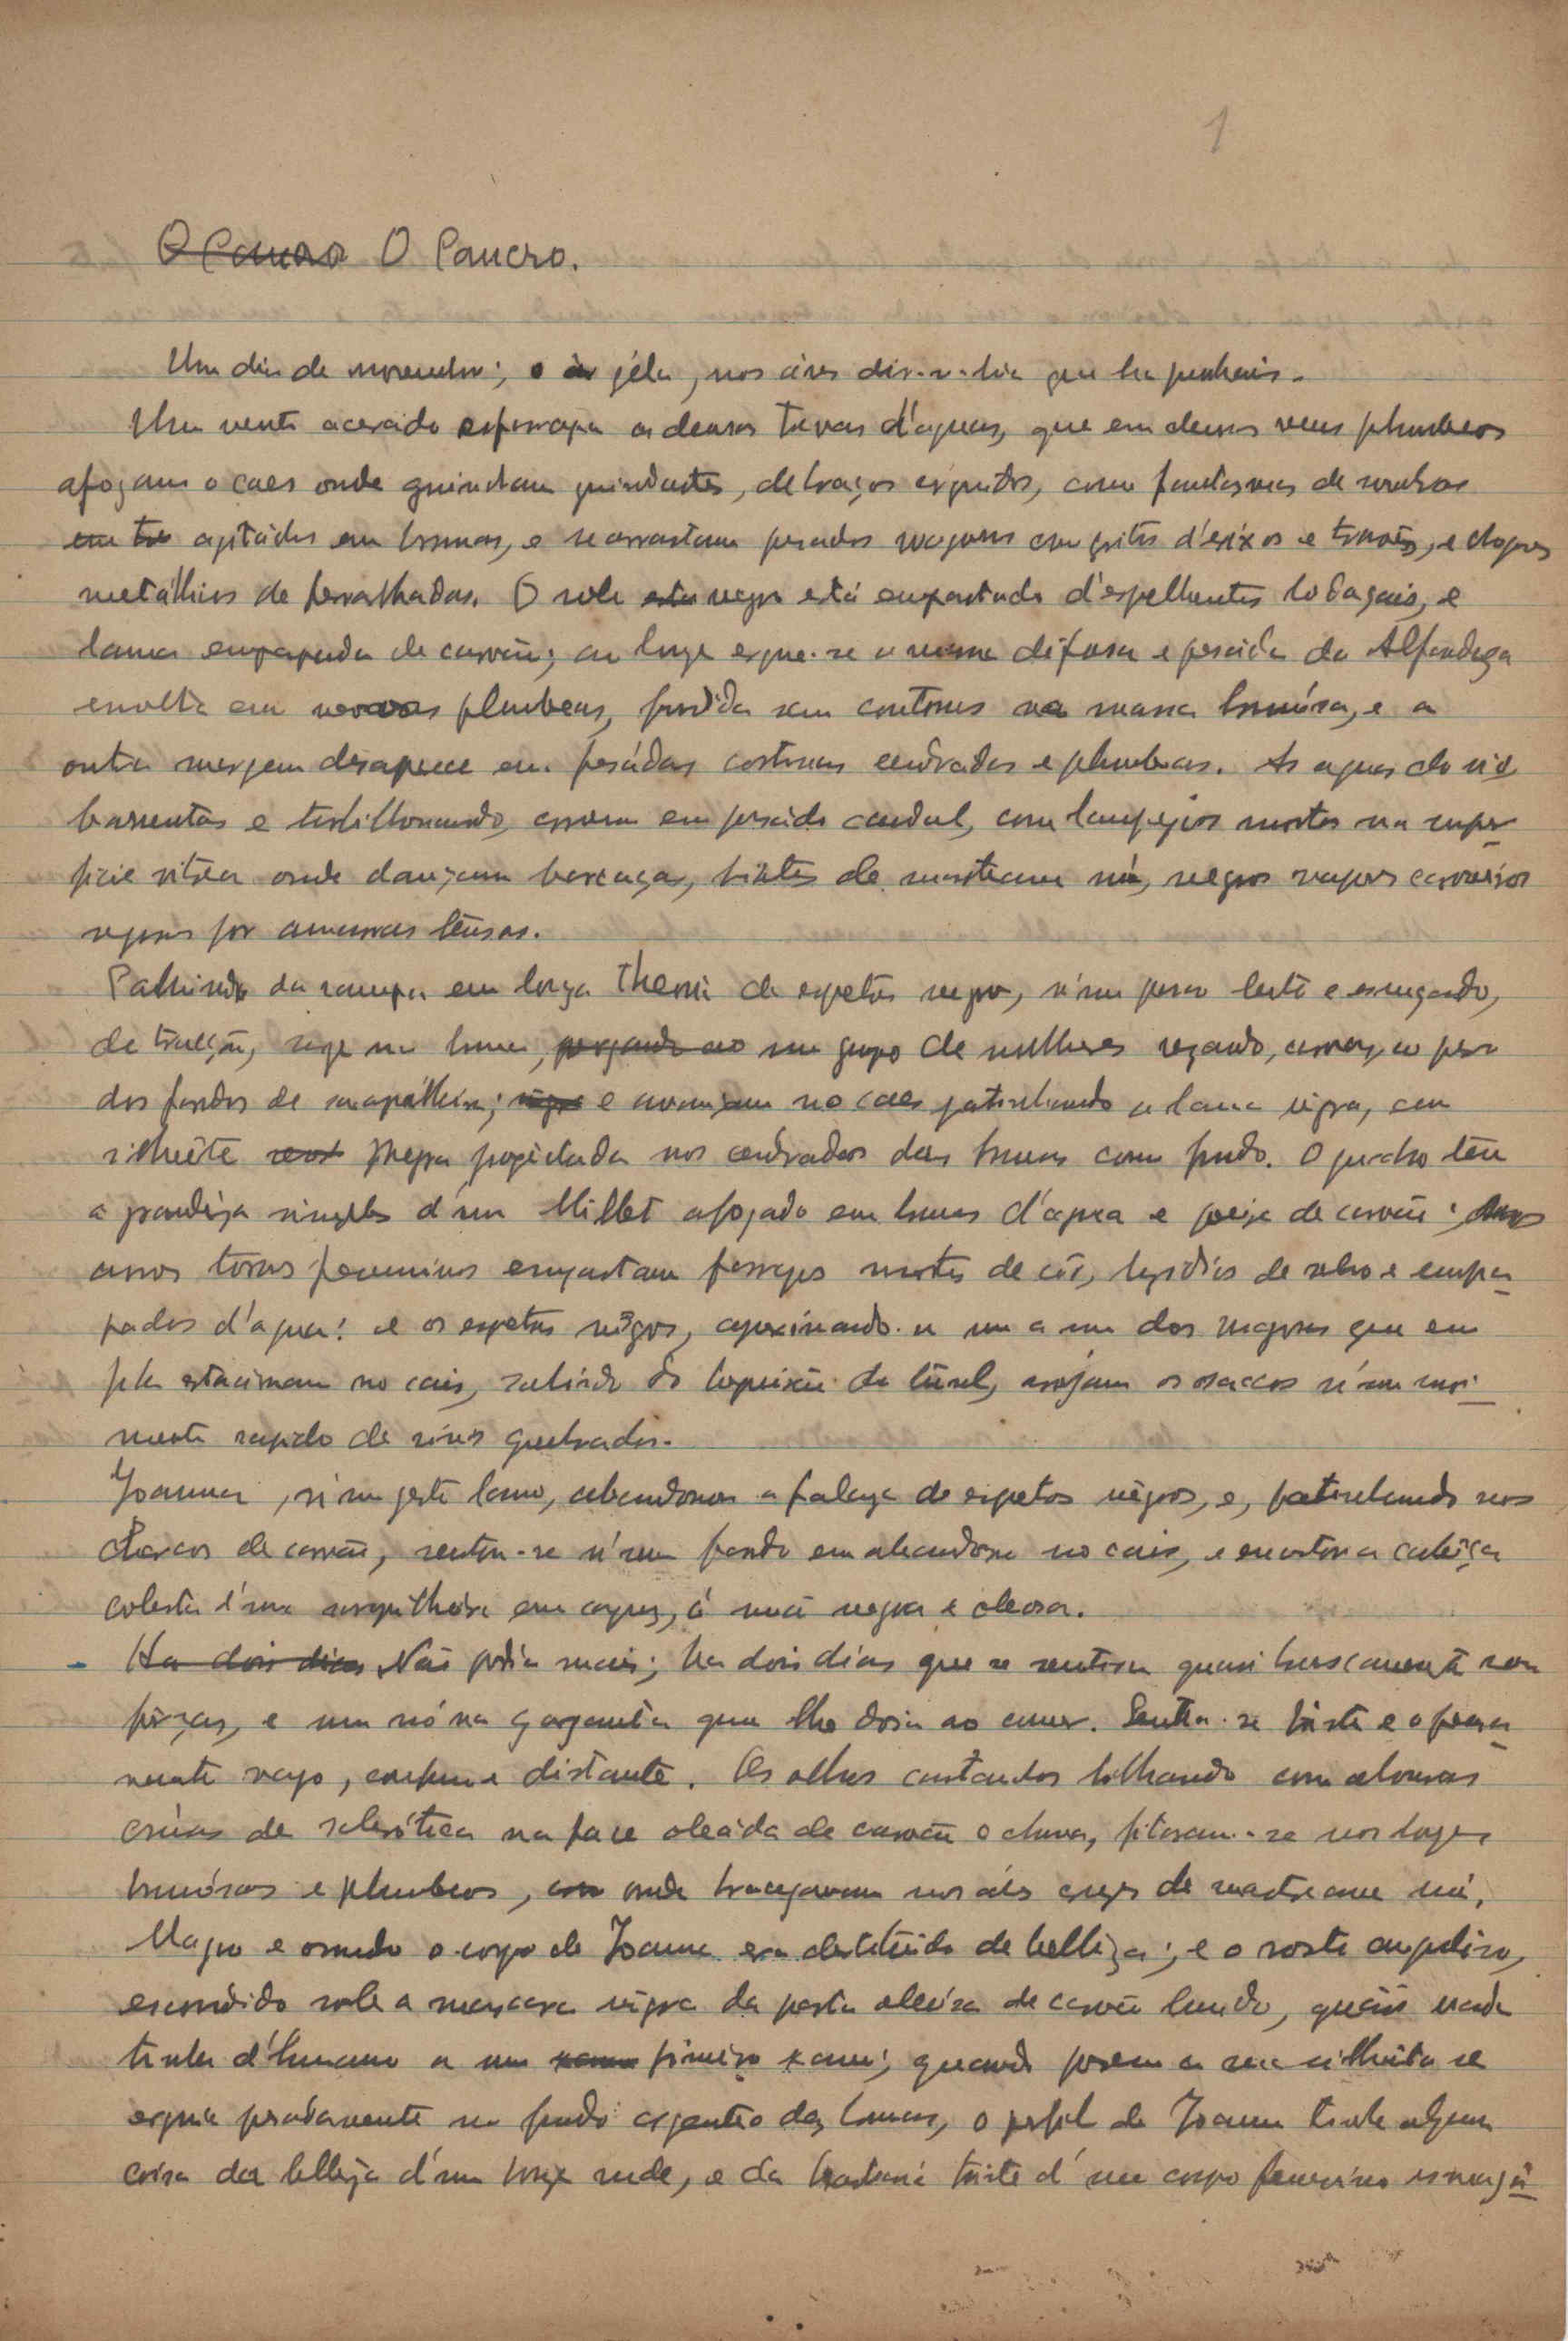 1
O Cancro O Cancro.
Um dia de novembro; o ar géla, nos áres dir-se-hia que ha punhais.
Um vento acerado esfarrapa as densas d'aguas, que em densos veus plumbeos
afogam o caes onde guindam guindastes, de braços erguidos, como fantasmas de sombras
agitádas em brumas, e se arrastam pesados wagons com gritos d'eixos e travões, e choques
metállicos de ferralhadas. O solo negro está empastado d'espelhentes lodaçais, e
lama empapada de carvão; ao longe ergue-se a massa difusa e pesáda da Alfandega
envolta em plumbeas, fundida sem contornos na massa brumósa, e a
outra margem desaparece em pesádas cortinas cendradas e plumbeas. As aguas do rio
barrentas e turbilhonando, correm em pesádo caudal, com lampejos mortos na super
ficie vitrea onde dançam barcaças, hiates de mastream nú, negros vapores carvoeiros
seguros por amarras tensas.
Caminho da rampa em longa theoria de espetros negros, n'um passo lento e esmagado,
de tracção, surge na bruma, um grupo de mulheres vergando, corcovas ao peso
dos fardos de sarapilheira; e avançam no caes patinhando a lama negra, com
silhuête negra projectada nos cendrados das brumas como fundo. O quadro tem
a grandêza simples d'um Millet afogado em brumas d'agua e poeira de carvão;
torsos femininos empastam farrapos mortos de côr, de sebo e empa
pados d'agua: e os espetros negros, aproximando-se um a um dos wagons que em
fila estacionam no cais, subindo do de túnel, arrojam os saccos n'um movi
mento rapido de rins quebrados.
Joanna, n'um gesto lasso, abandonou a falange de espetros negros, e, patinhando nos
charcos de carvão, sentou-se n'um fardo em abandono no cais, e encostou a cabêça
coberta d'uma sarapilheira em capuz, á mão negra e oleosa.
Ha dois dias Não podia mais; ha dois dias que se sentira quasi bruscamente sem
fôrças, e um nó na garganta que lhe doia ao comer. Sentia-se triste e o pensa
mento vago, confuso e distante. Os olhos castanhos brilhando com alvuras
crúas de sclerótica na face oleáda de carvão e chuva, fitaram-se nos longes
brumósos e plumbeos, onde bracejavam nos áres cruzes de mastreame nú.
Magro e ossudo o corpo de Joanna era destituido de bellêza; e o rosto anguloso,
escondido sob a mascara negra da pasta oleósa de carvão humido, quási nada
tinha d'humano a um primeiro exame; quando porem a sua silhuêta se
erguia pesadamente no fundo argenteo das brumas, o perfil de Joanna tinha alguma
coisa da bellêza d'um bronze rude, e da triste d'um corpo feminino esmagá